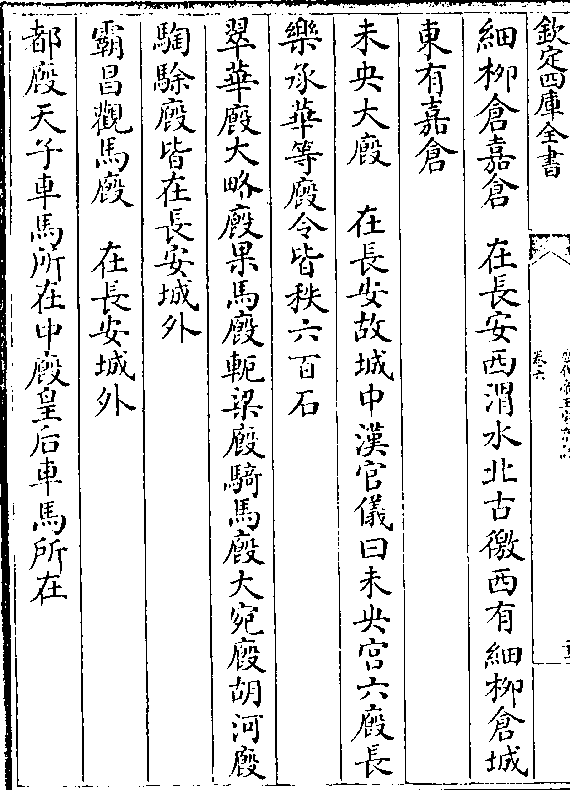 欽定四庫全書
卷六
細柳倉嘉倉　在長安西渭水北古徼西有細柳倉城
東有嘉倉
未央大廏　在長安故城中漢官儀曰未央宫六廏長
樂承華等廏令皆秩六百石
翠華廏大略廏果馬廏軛梁廏騎馬廏大宛廏胡河廏
騊駼廏皆在長安城外
霸昌觀馬廏　在長安城外
都廏天子車馬所在中廏皇后車馬所在